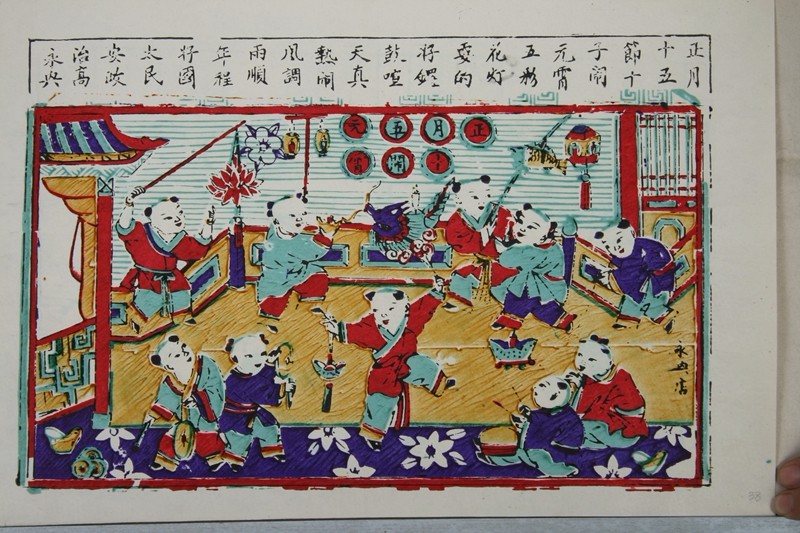 正月
十五
節十
子鬧
元宵
五彩
花灯
耍的
好
鼓喧
天真
熱闹
風調
雨順
年程
好國
太民
安政
治高
永兴
正月十五鬧元宵
永兴店
38